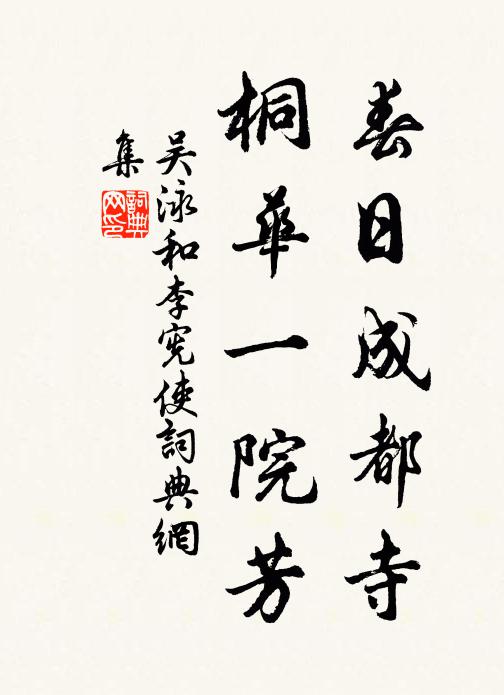 春日成都寺
桐華一院芳
吴泳和李宪使詞典網
集
詞典
网印